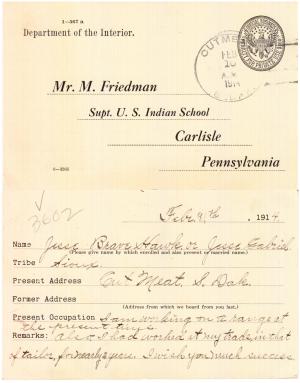 1—367 a
Department of the Interior.
CUTMEAT
FEB
10
A.M.
1914
S. DAK.
Mr. M. Friedman
Supt. U. S. Indian School
Carlisle
Pennsylvania
3602
Feby 9th, 1914
Name Jesse Brave Hawk or Jesse Gabriel
(Please give name by which enrolled and also present or married name.)
Tribe Sioux.
Present Address Cut Meat, S. Dak.
Former Address
(Address from which we heard from you last.)
Present Occupation I am working on the range at
the present time.
Remarks: Also I had worked at my trade, in that
of tailor, for nearly years. I wish you much success